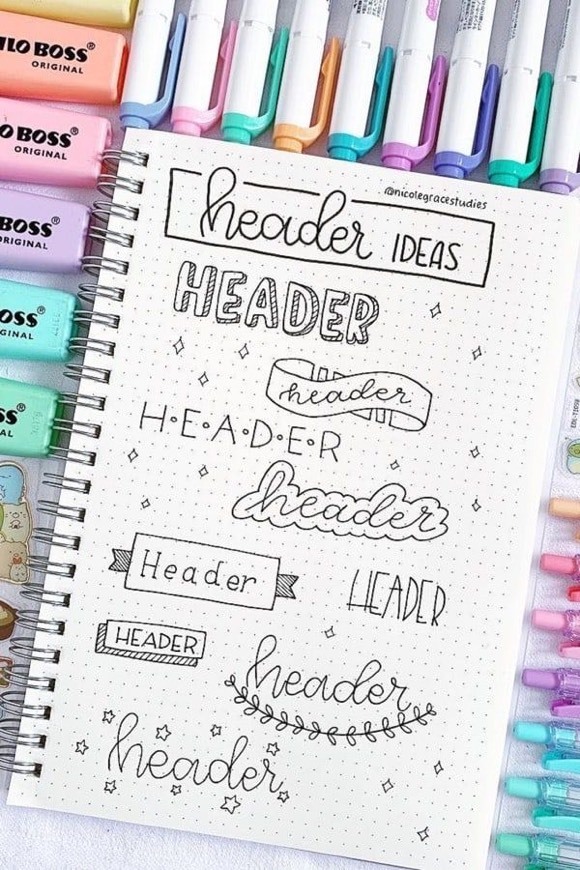 ILO BOSS®
ORIGINAL
O BOSS®
ORIGINAL
BOSS®
ORIGINAL
OSS®
GINAL
SS®
AL
@nicolegracestudies
header IDEAS
HEADER
header
H·E·A·D·E·R
header
Header
HEADER
HEADER
header
header